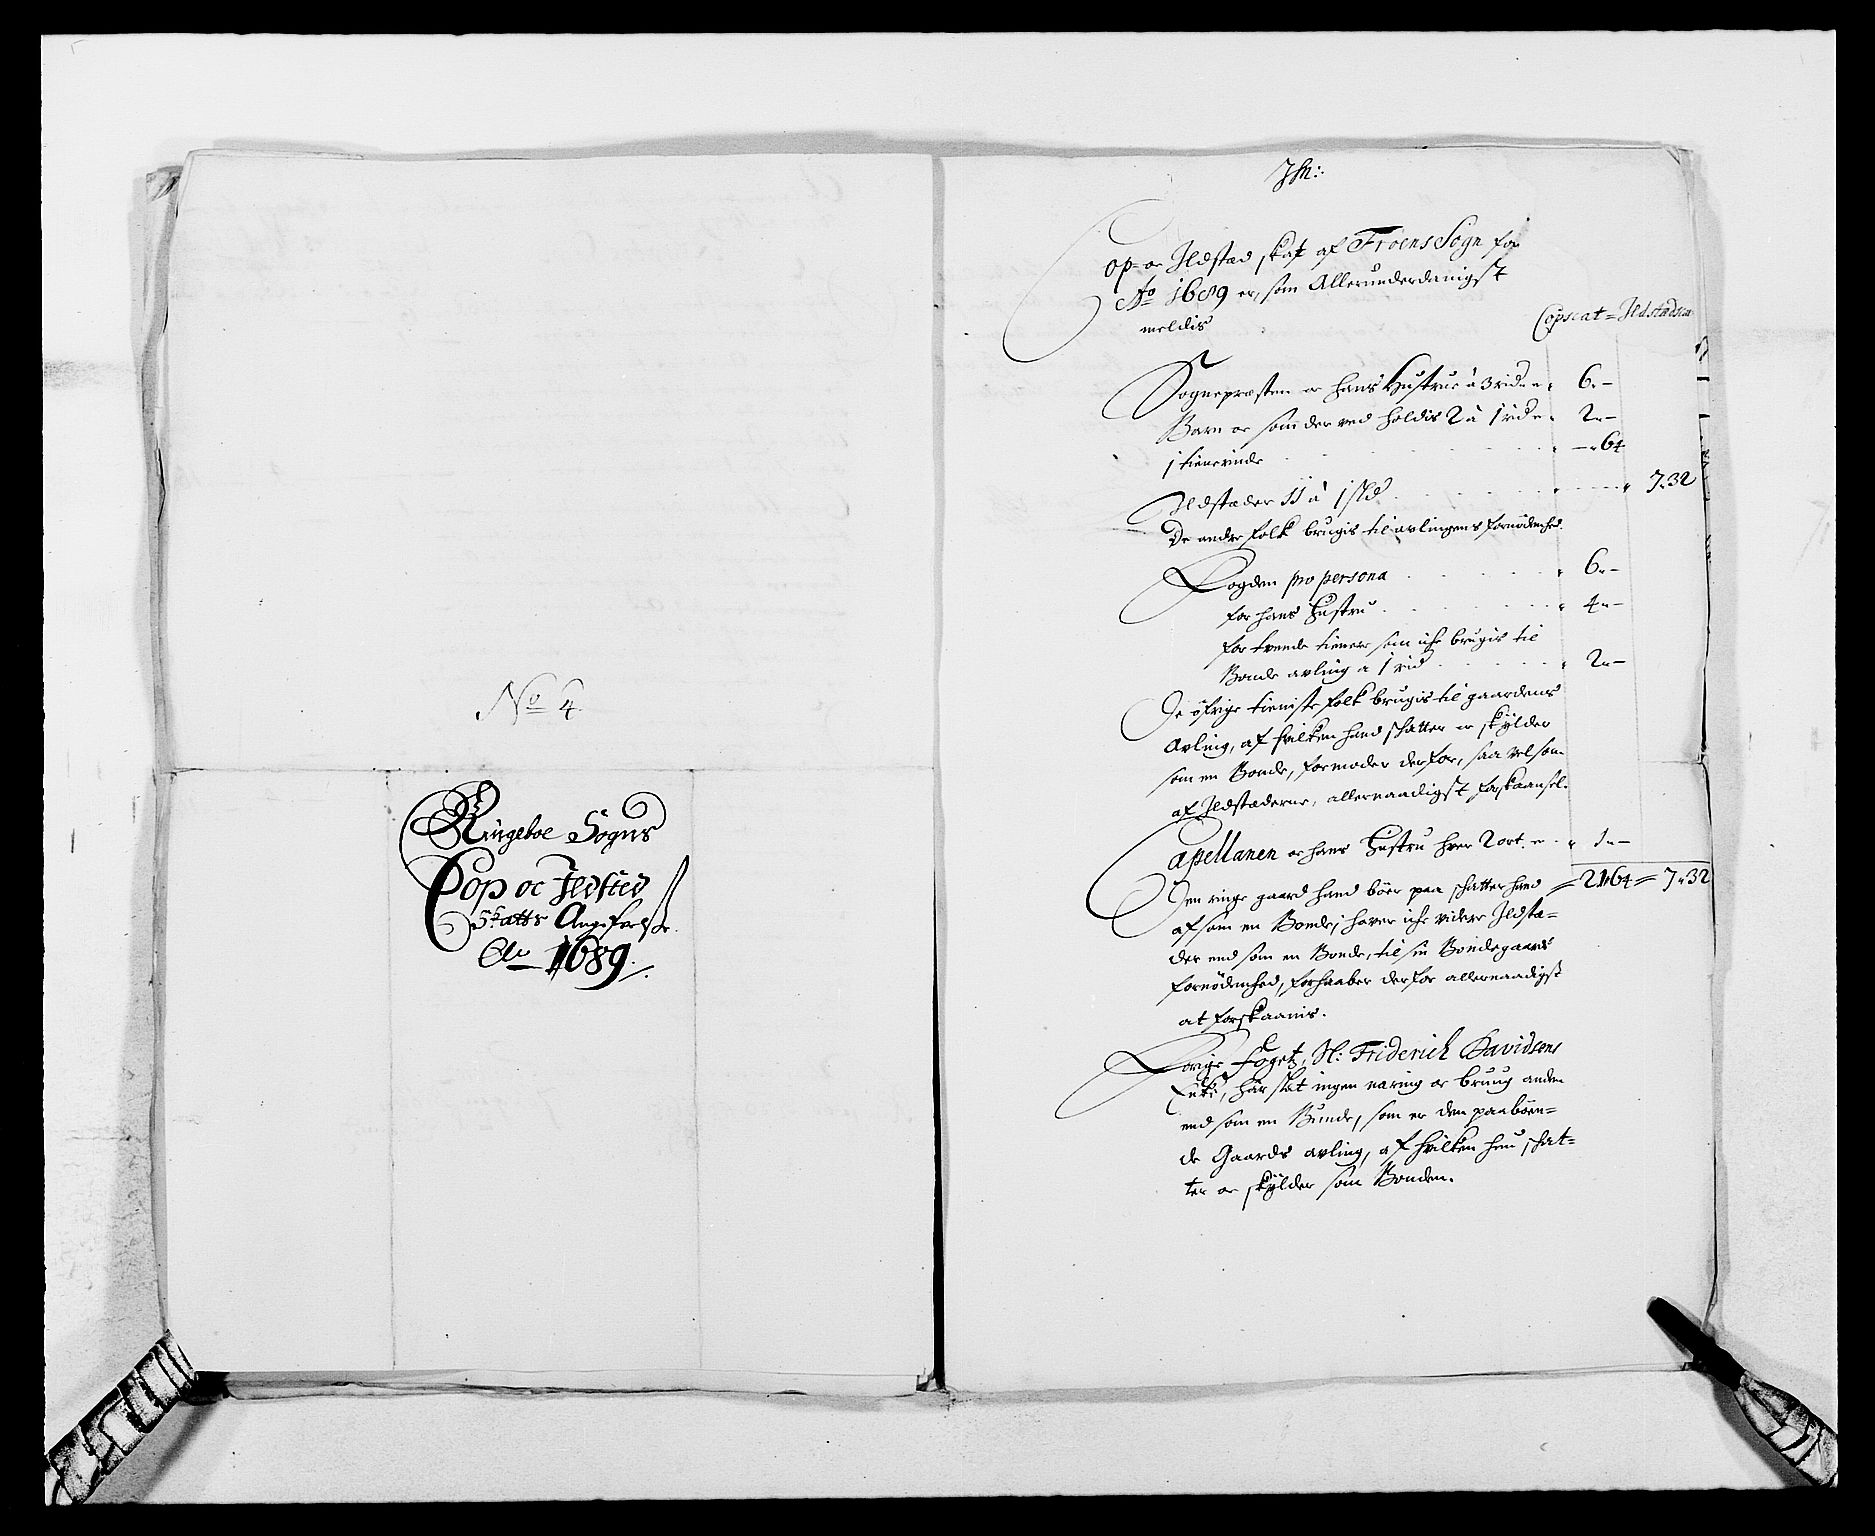 No 4.
Ringeboe Sogns
Cop oc Ildsted
Skatts Angifvelse
Ao 1689./.
Jsh:
Cop- oc Ildstad skat af Froens Sogn for
Ao 1689 er, som Allerunderdanigst
meldis
Copscat = Ildstadscat
Sognepresten oc hans Hustrue à 3 rixd " 6 " -
Børn oc som der ved holdis 2 à 1 rixd " 2 " -
1 tienerinde - " 64
Ildstæder 11 à 1 sld 7 " 32
De andre folk brugis til avlingens fornødenhed.
Fogden pro persona 6 " -
for hans Hustru 4 " -
for tvende tienere som iche brugis til
Bonde avling a 1 rixd 2 " -
De øfrige tieniste folk brugis til gaardens
Avling, af hvilken hand skatter oc skylder
som en Bonde, formoder derfor, saa vel som
af Ildstæderne, allernaadigst forskaansel.
Capellanen oc hans Hustru hver 2 ort. er 1 " -
Den ringe gaard hand boer paa skatter hand = 21 " 64 = 7 " 32
af som en Bonde; haver iche videre Ildstæ=
der end som en Bonde, til sin Bondegaards
fornødenhed, forhaaber derfor allernaadigst
at forskaanis.
Forige fogetz, Sl: Friderich Davidsens
Enke, har slet ingen næring oc bruug anden
end som en Bunde, som er den paaboen=
de Gaards avling, af hvilken hun skat=
ter oc skylder som Bonden.